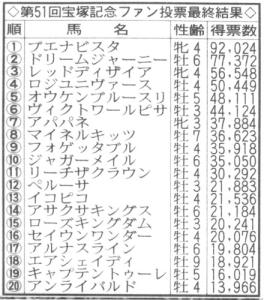 ◇第51回宝塚記念ファン投票最終結果◇
順 馬名 性齢 得票数
① ブエナビスタ 牝4 92,024
② ドリームジャーニー 牡6 77,372
③ レッドディザイア 牝4 56,548
④ ロジユニヴァース 牡4 51,449
⑤ オウケンブルースリ 牡5 48,111
⑥ ヴィクトワールピサ 牡3 44,124
⑦ アパパネ 牝3 37,884
⑧ マイネルキッツ 牡7 36,623
⑨ フォゲッタブル 牡4 35,918
⑩ ジャガーメイル 牡6 35,050
⑪ リーチザクラウン 牡4 30,292
⑫ ペルーサ 牡3 21,883
⑬ イコピコ 牡4 21,536
⑭ アサクサキングス 牡6 21,184
⑮ ローズキングダム 牡3 20,241
⑯ セイウンワンダー 牡4 20,076
⑰ アルナスライン 牡6 19,804
⑱ エアシェイディ 牡9 18,921
⑲ キャプテントゥーレ 牡5 16,019
⑳ アンライバルド 牡4 13,966